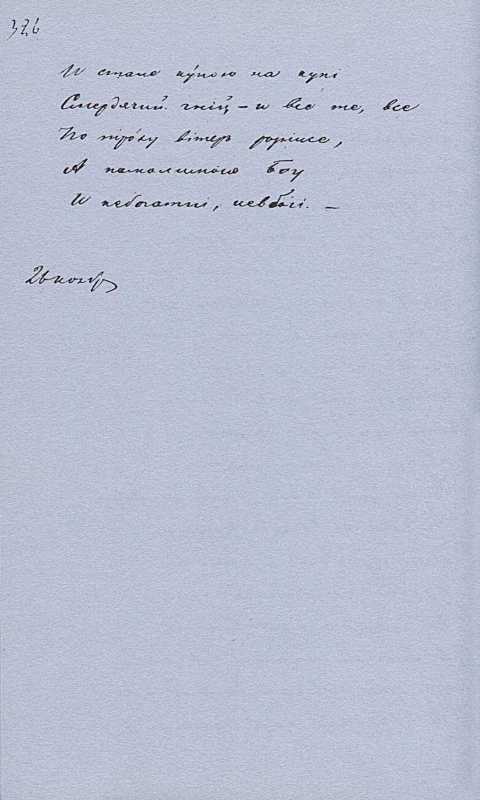 326
И стане ку́пою на купі
Смердячий гній – и все те, все
По тро́ху вітеръ рознесе,
А помолимо́ся Богу
И небогатиі, невбо́гі. —
26 ноябр